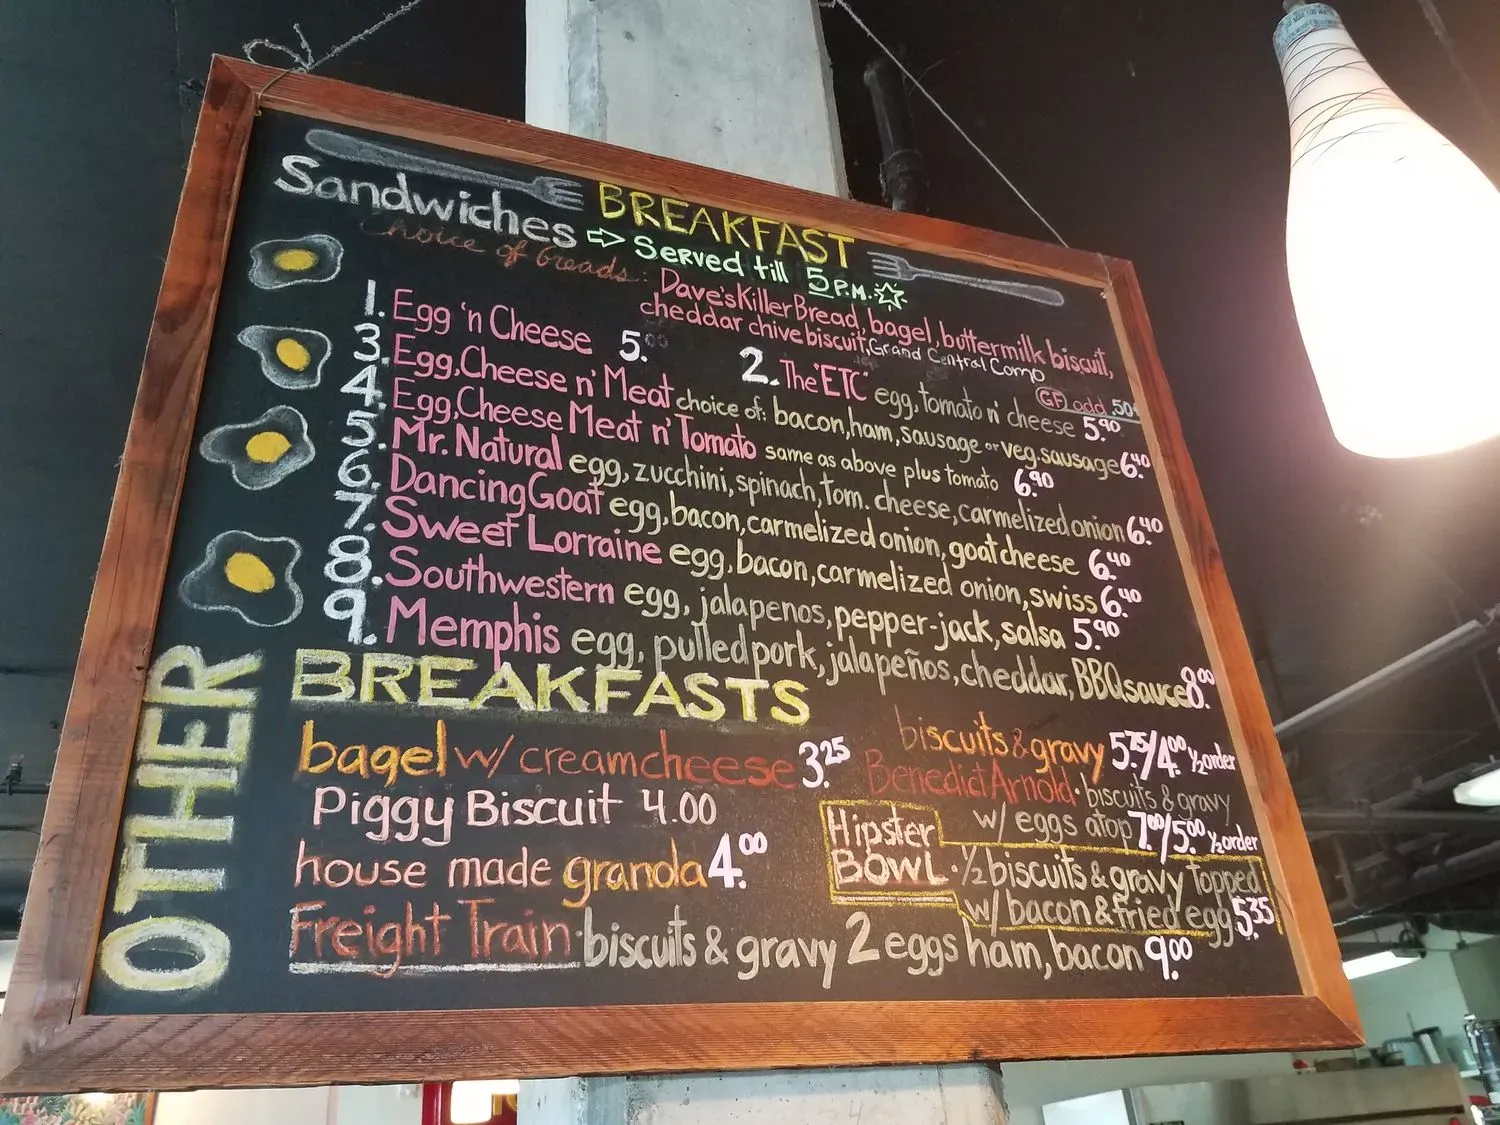 BREAKFAST
Sandwiches
⇨ Served till 5 P.M.
Choice of breads: Dave's Killer Bread, bagel, buttermilk biscuit,
cheddar chive biscuit, Grand Central Como
GF add .50¢
1. Egg 'n Cheese 5.00
2. The "ETC" egg, tomato n' cheese 5.90
3. Egg, Cheese n' Meat choice of: bacon, ham, sausage or veg. sausage 6.40
4. Egg, Cheese Meat n' Tomato same as above plus tomato 6.90
5. Mr. Natural egg, zucchini, spinach, tom. cheese, carmelized onion 6.40
6. Dancing Goat egg, bacon, carmelized onion, goat cheese 6.40
7. Sweet Lorraine egg, bacon, carmelized onion, swiss 6.40
8. Southwestern egg, jalapenos, pepper-jack, salsa 5.90
9. Memphis egg, pulled pork, jalapeños, cheddar, BBQ sauce 8.00
OTHER
BREAKFASTS
bagel w/ creamcheese 3.25
Piggy Biscuit 4.00
house made granola 4.00
biscuits & gravy 5.75/4.00 ½ order
Benedict Arnold · biscuits & gravy
w/ eggs atop 7.00/5.00 ½ order
Hipster
BOWL · ½ biscuits & gravy Topped
w/ bacon & fried egg 5.35
Freight Train · biscuits & gravy 2 eggs ham, bacon 9.00